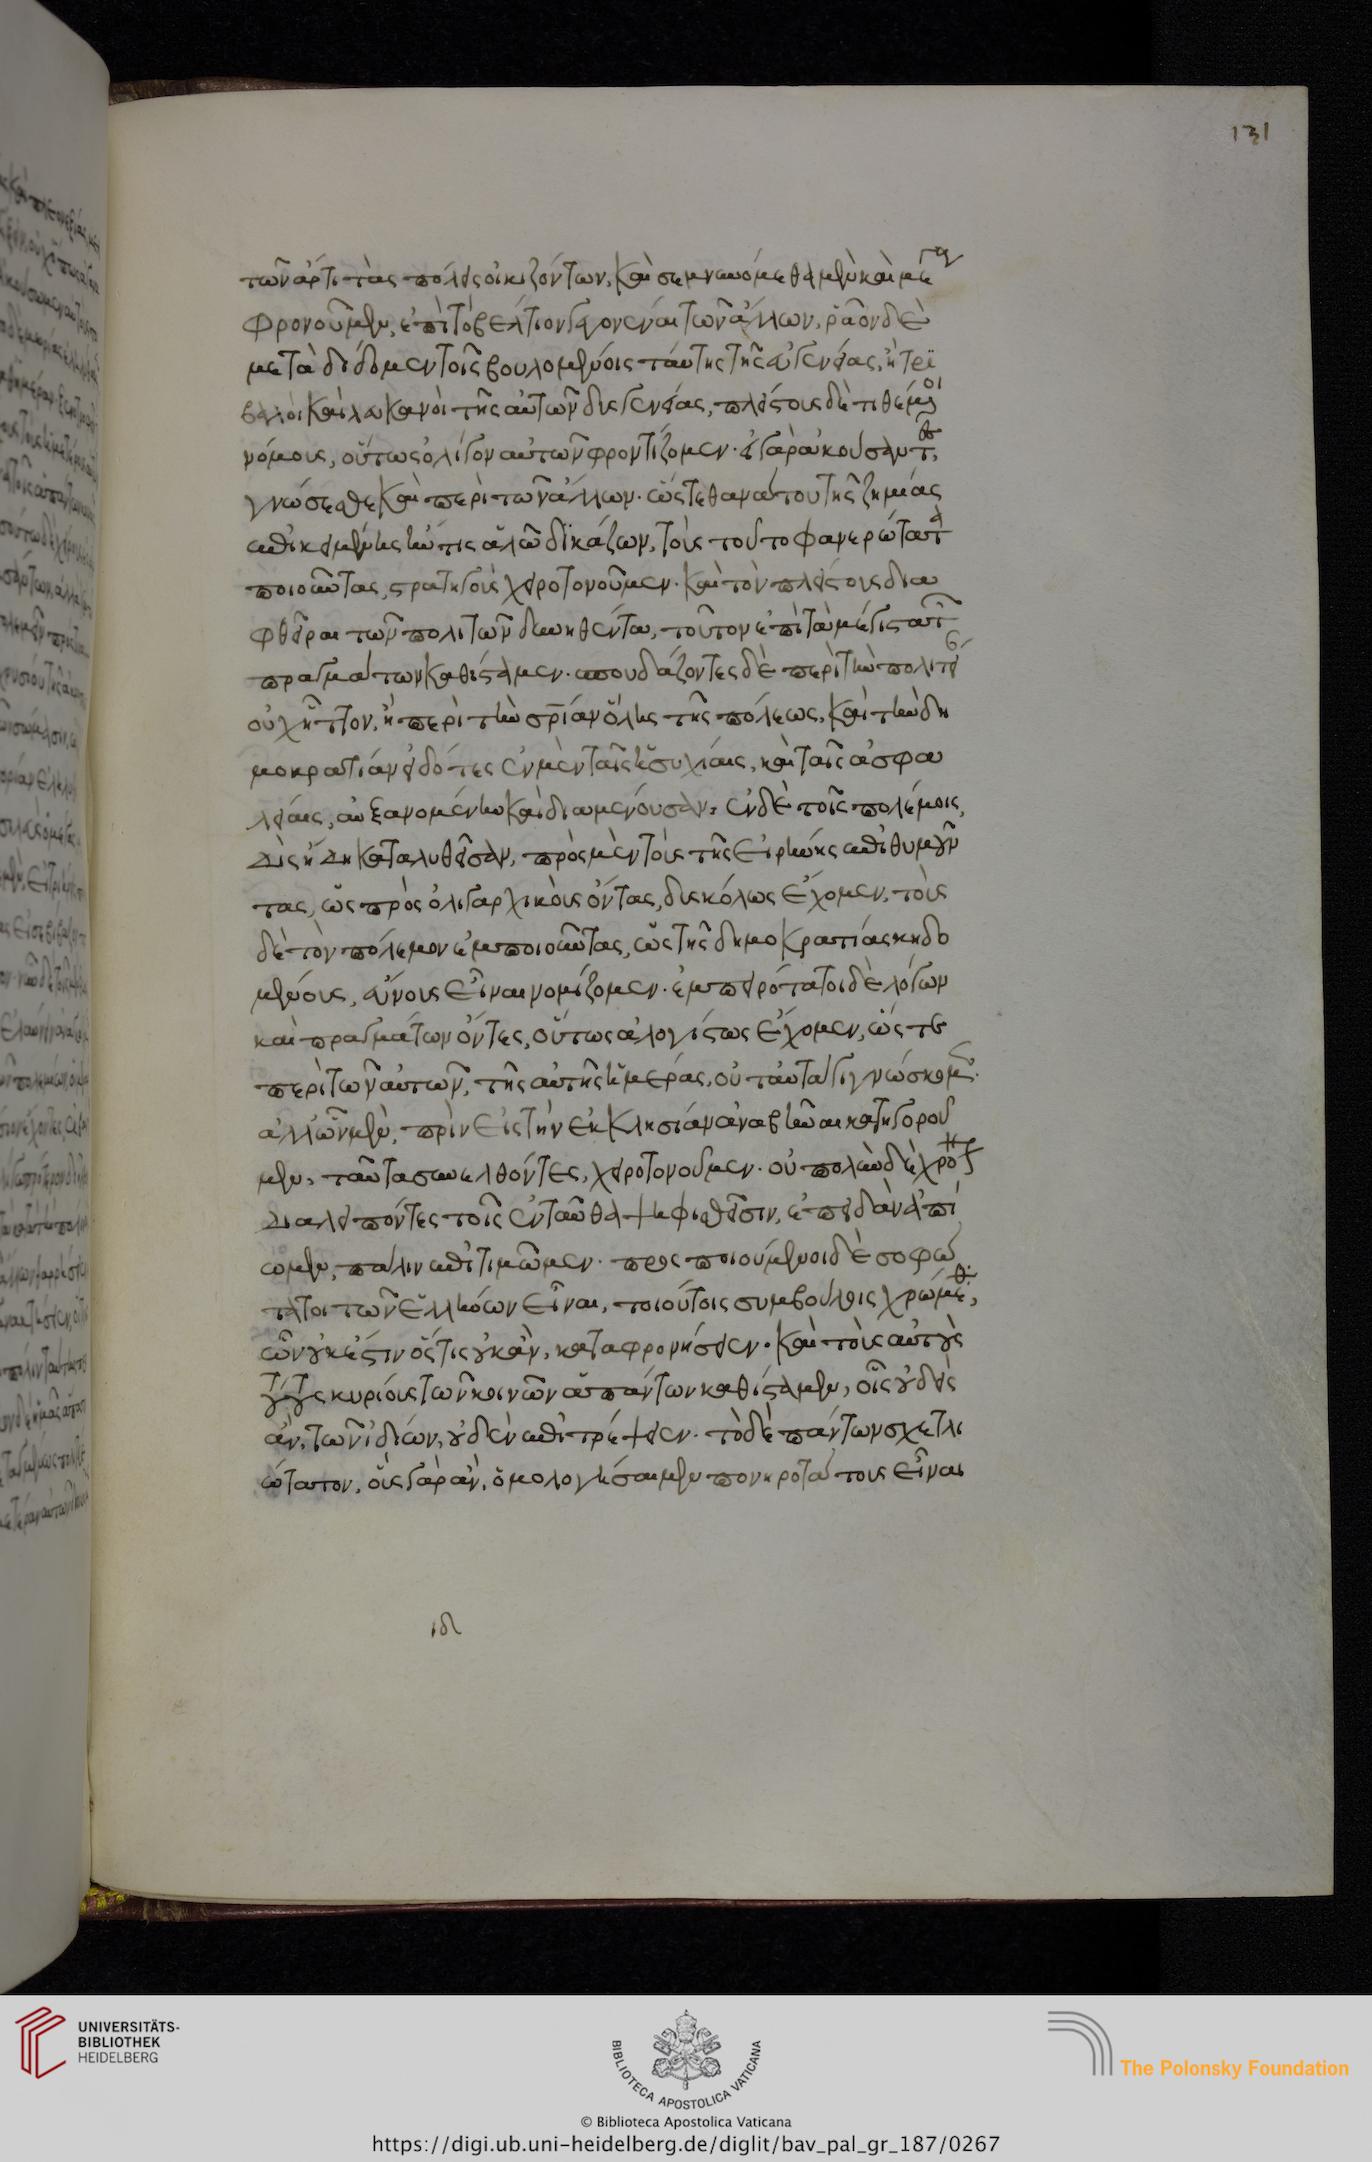 131
τῶν ἄρτι τὰς πόλεις οἰκιζόντων, καὶ σεμνυνόμεθα μὲν καὶ μέγα
φρονοῦμεν, ἐπὶ τὸ βέλτιον γεγονέναι τῶν ἄλλων, ῥᾷον δὲ
μεταδίδομεν τοῖς βουλομένοις ταύτης τῆς εὐγενείας, ἢ τρι
βαλοὶ καὶ λευκανοὶ τῆς αὐτῶν δυσγενείας, πλείστους δὲ τιθέμενοι
νόμους, οὕτως ὀλίγον αὐτῶν φροντίζομεν· ἓν γὰρ ἀκούσαντες,
γνώσεσθε καὶ περὶ τῶν ἄλλων· ὥστε θανάτου τῆς ζημίας
ἐπικειμένης ἤν τις ἁλῶ δικάζων, τοὺς τοῦτο φανερώτατα
ποιοῦντας, στρατηγοὺς χειροτονοῦμεν· καὶ τὸν πλείστους δια
φθεῖραι τῶν πολιτῶν δυνηθέντα, τοῦτον ἐπὶ τὰ μέγιστα τῶν
πραγμάτων καθίσταμεν· σπουδάζοντες δὲ περὶ τὴν πολιτείαν
οὐχ ἧττον, ἢ περὶ τὴν σωτηρίαν ὅλης τῆς πόλεως, καὶ τὴν δη
μοκρατίαν εἰδότες ἐν μὲν ταῖς ἡσυχίαις, καὶ ταῖς ἀσφα
λείαις, αὐξανομένην καὶ διαμένουσαν, ἐν δὲ τοῖς πολέμοις,
δὶς ἤδη καταλυθεῖσαν, πρὸς μὲν τοὺς τῆς εἰρήνης ἐπιθυμοῦν
τας, ὡς πρὸς ὀλιγαρχικοὺς ὄντας, δυσκόλως ἔχομεν, τοὺς
δὲ τὸν πόλεμον ἐμποιοῦντας, ὡς τῆς δημοκρατίας κηδο
μένους, εὔνους εἶναι νομίζομεν· ἐμπειρότατοι δὲ λόγων
καὶ πραγμάτων ὄντες, οὕτως ἀλογίστως ἔχομεν, ὥστε
περὶ τῶν αὐτῶν, τῆς αὐτῆς ἡμέρας, οὐ ταὐτὰ γιγνώσκομεν·
ἀλλ' ὧν μὲν, πρὶν εἰς τὴν ἐκκλησίαν ἀναβῆναι κατηγοροῦ
μεν, ταῦτα συνελθόντες, χειροτονοῦμεν· οὐ πολὺν δὲ χρόνον
διαλιπόντες τοῖς ἐνταῦθα ψηφισθεῖσιν, ἐπειδὰν ἀπί
ωμεν, πάλιν ἐπιτιμῶμεν· προσποιούμενοι δὲ σοφώ
τατοι τῶν ἑλλήνων εἶναι, τοιούτοις συμβούλοις χρώμεθα,
ὧν οὐκ ἔστιν ὅστις οὐκ ἂν, καταφρονήσειεν· καὶ τοὺς αὐτοὺς
τούτους κυρίους τῶν κοινῶν ἁπάντων καθίσταμεν, οἷς οὐδεὶς
ἂν, τῶν ἰδίων, οὐδὲν ἐπιτρέψειεν· τὸ δὲ πάντων σχετλι
ώτατον, οὓς γὰρ ἂν, ὁμολογήσαιμεν πονηροτάτους εἶναι
ιδ
UNIVERSITÄTS-
BIBLIOTHEK
HEIDELBERG
BIBLIOTECA APOSTOLICA VATICANA
The Polonsky Foundation
© Biblioteca Apostolica Vaticana
https://digi.ub.uni-heidelberg.de/diglit/bav_pal_gr_187/0267